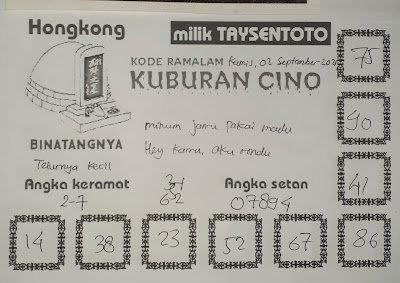 Hongkong
milik TAYSENTOTO
KODE RAMALAM Kamis, 02 September
KUBURAN CINO
75
minum jamu pakai madu
Hey kamu, aku rondu
90
BINATANGNYA
Telurnya kecil
Angka keramat
2-7
34
652
Angka setan
07894
41
14
38
23
52
67
86